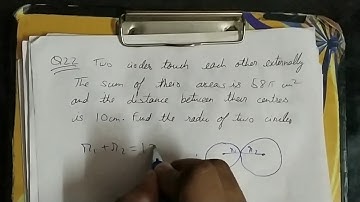 Q22 Two circles touch each other externally
The sum of their areas is 58π cm²
and the distance between their centres
is 10cm. Find the radii of two circles
r₁ + r₂ = 1
r₁ r₂